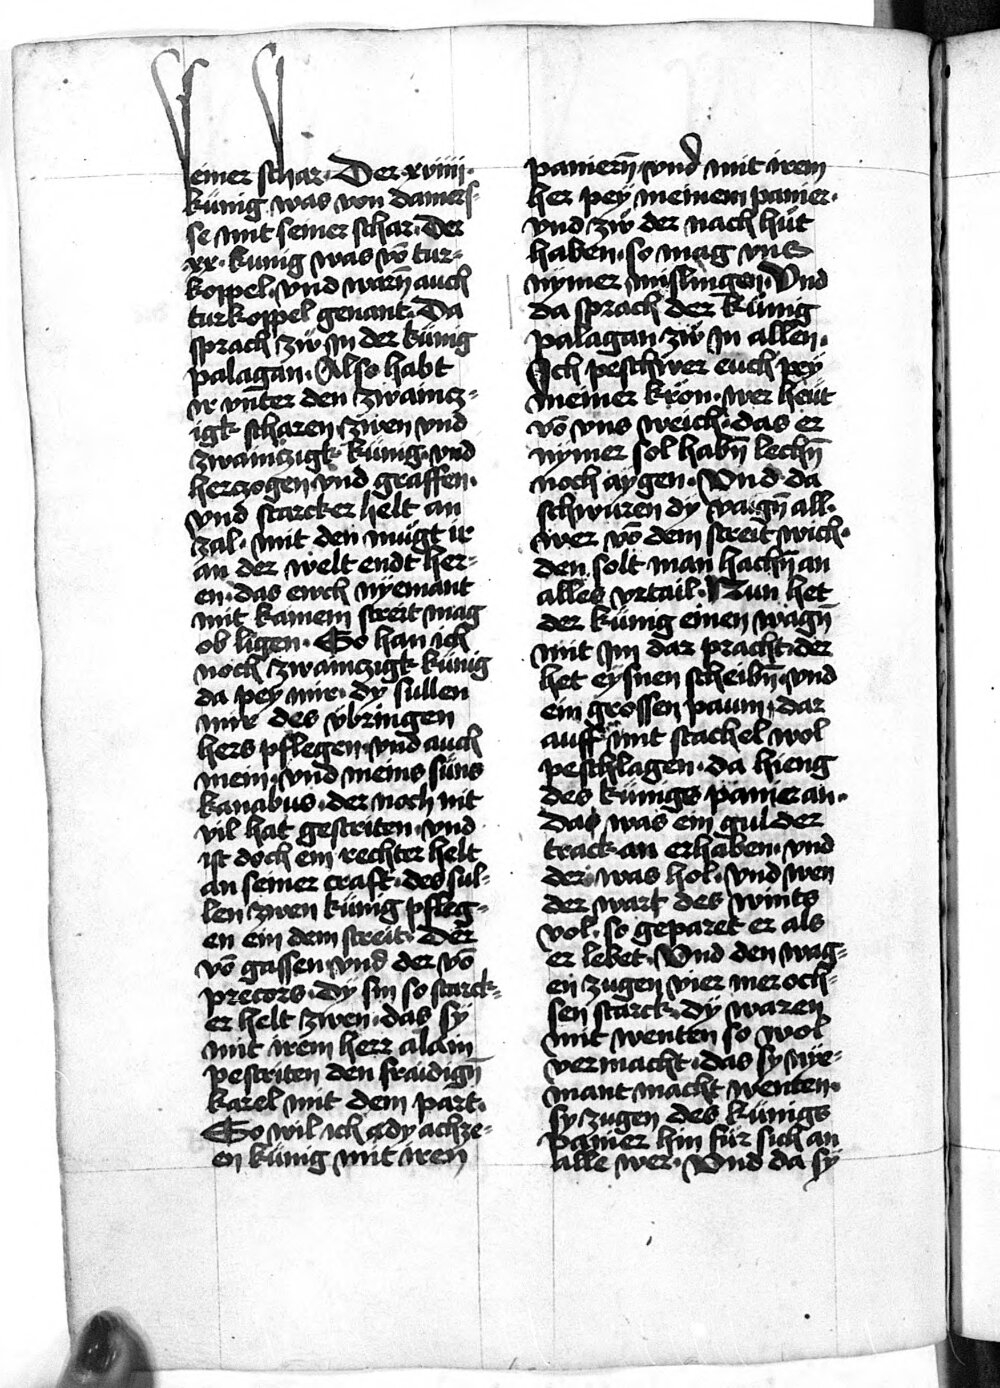 seiner schar. Der xviiii.
künig was von damers-
se mit seiner schar. Der
xx. kunig was vō tur-
koppel. vnd warn̄ auch
turkoppel genant. Da
sprach zw̆ in der künig
palagan. Also habt
ir vnter den zwaincz-
igk scharen zwen vnd
zwainczigk künig. vnd
herczogen vnd graffen.
vnd starcker helt an
zal. mit den mügt ir
an der welt endt her-
en. das ewch nyemant
mit kainem streit mag
ob ligen. So han ich
noch zwainczigk künig
da pey mir. dy sullen
mir des vbringen
hers pflegen. vnd auch
mein. vnd meins süns
kanabus. der noch nit
vil hat gestriten. vnd
ist doch ein rechter helt
an seiner craft. des sul-
len zwen künig pfleg-
en ein dem streit. Der
vō gassen vnd der vō
precors. dy sin so starck-
er helt zwen. das sy
mit irem herr alain
pestriten den fraidign̄
karel mit dem part.
So wil ich ady achze-
en künig mit iren
paniern̄. vnd mit irem
her pey meinem panier.
vnd zw̆ der nach hüt
haben. so mag vns
nymer mislingen. Vnd
da sprach der künig
palagan zw̆ in allen.
Ich peschwer euch pey
meiner krön. wer heüt
vō vns weich. das er
nymer sol habn̄ lechn̄
noch aygen. Vnd da
schwuren dy haign̄ all.
wer vō dem streit wich.
den solt man hachn̄ an
alles vrtail. Nun het
der künig einen wagn̄
mit im dar pracht. der
het eysnen scheibn̄. vnd
ein grossen paum. dar
auff mit stachel wol
peschlagen. da hieng
des künigs panier an.
das was ein gulder
track an erhaben. vnd
der was hol. vnd wen
der wart des wints
vol. so geparet er als
er lebet. Vnd den wag-
en zugen vier mer och-
sen starck. dy waren
mit wenten so wol
vermacht. das sy nye-
mant macht wenten.
sy zugen des künigs
panier hin für sich an
alle wer. Vnd da sy